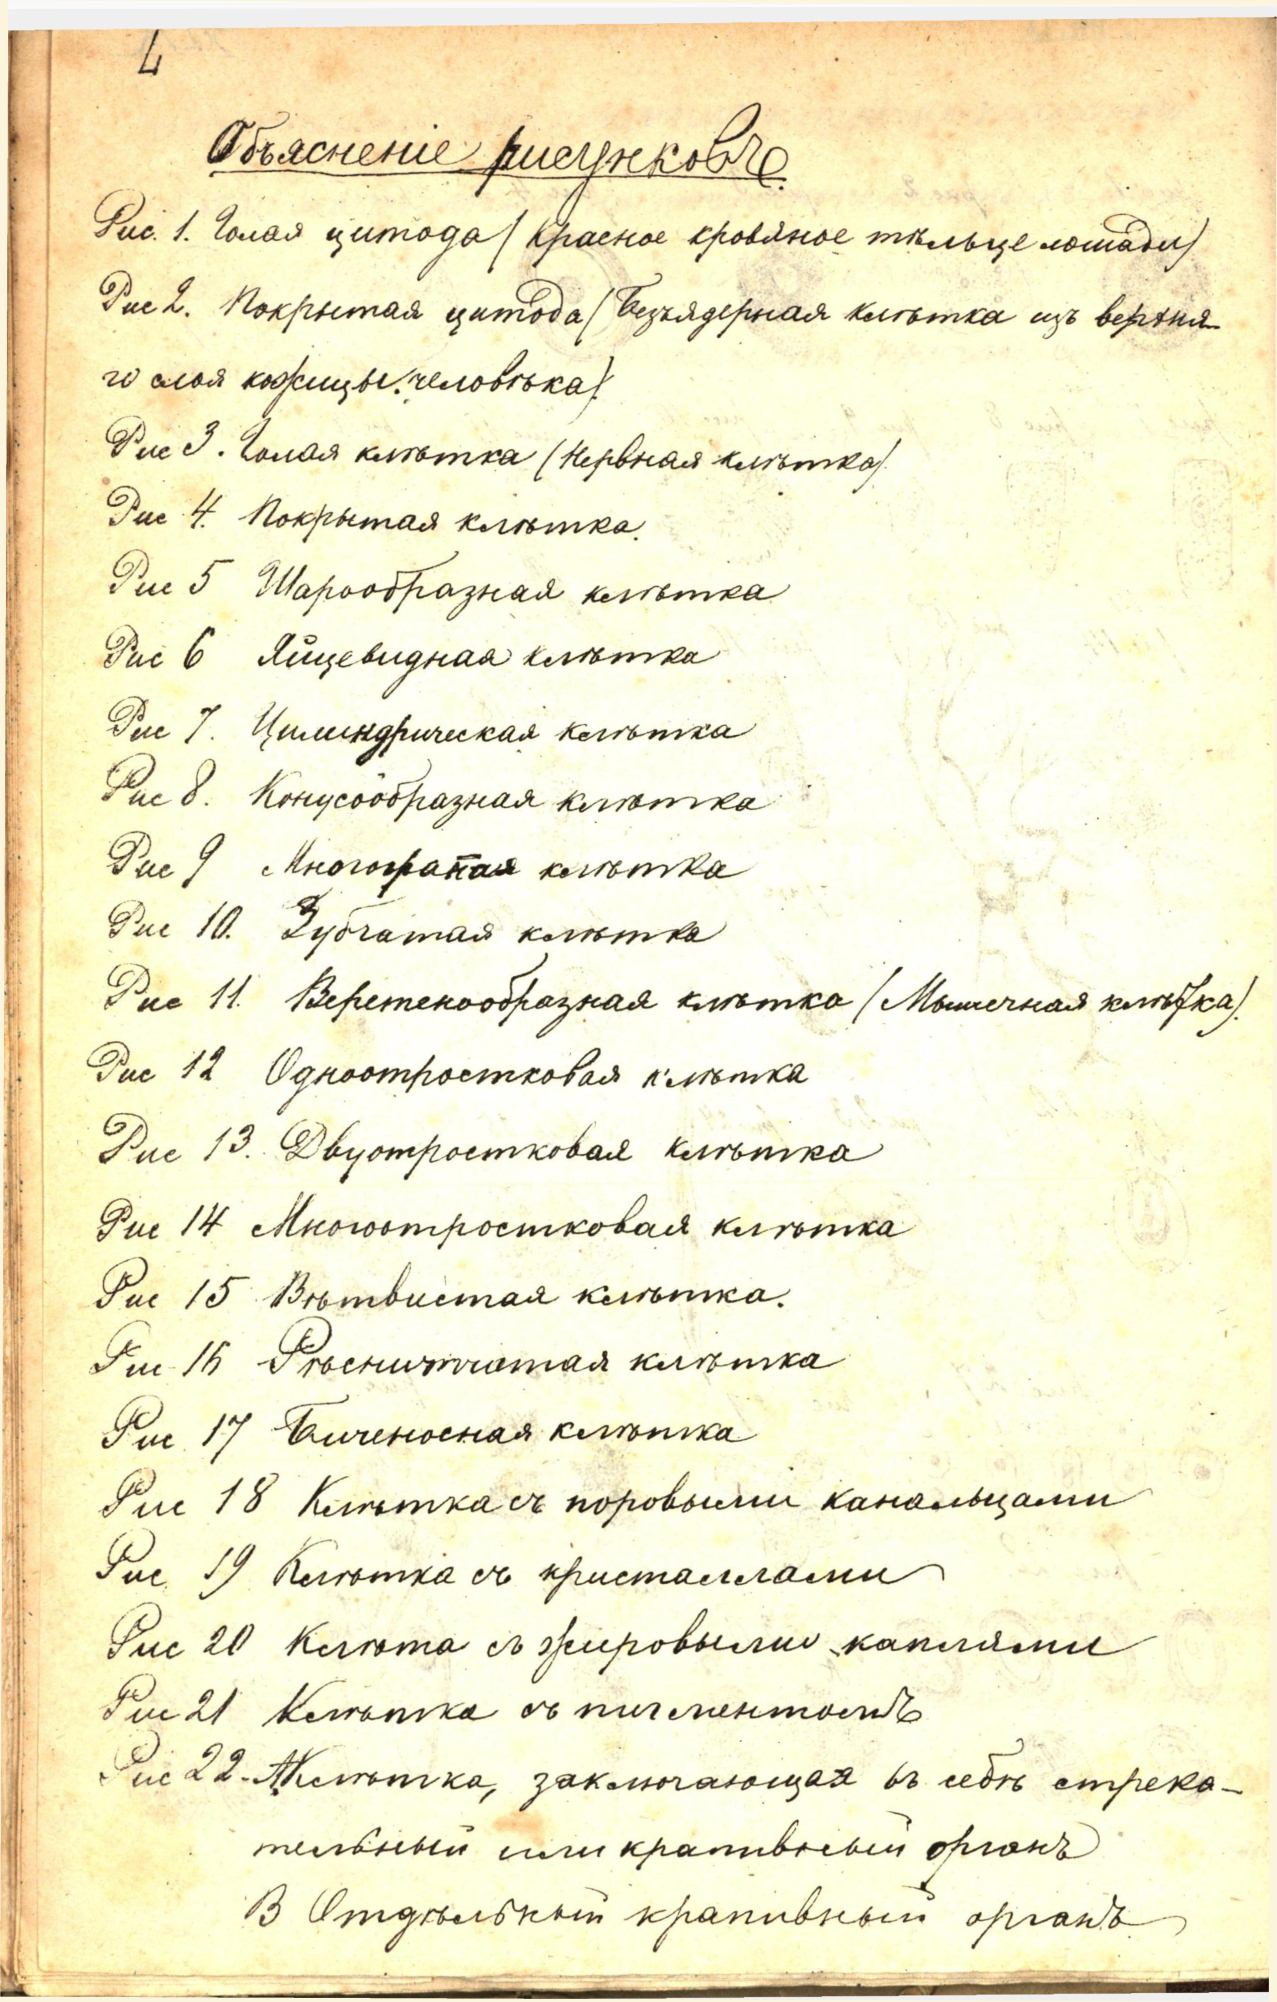 Объясненіе рисунковъ.
Рис. 1. Голая цитода (Красное кровяное тѣльце лошади)
Рис 2. Покрытая цитода (Безъядерная клѣтка изъ верхня-
го слоя кожицы человѣка).
Рис 3. Голая клѣтка (Нервная клѣтка).
Рис 4. Покрытая клѣтка.
Рис 5 Шарообразная клѣтка
Рис 6 Яйцевидная клѣтка
Рис 7. Цилиндрическая клѣтка
Рис 8. Конусообразная клѣтка
Рис 9 Многогранная клѣтка
Рис 10. Зубчатая клѣтка
Рис 11. Веретенообразная клѣтка (Мышечная клѣтка).
Рис 12 Одноотростковая клѣтка
Рис 13. Двуотростковая клѣтка
Рис 14 Многоотростковая клѣтка
Рис 15 Вѣтвистая клѣтка.
Рис 16 Рѣснитчатая клѣтка
Рис 17 Биченосная клѣтка
Рис 18 Клѣтка съ поровыми канальцами
Рис 19 Клѣтка съ кристаллами
Рис 20 Клѣта съ жировыми каплями
Рис 21 Клѣтка съ пигментомъ
Рис 22. А Клѣтка, заключающая въ себѣ стрека-
тельный или крапивный органъ
В Отдѣльный крапивный органъ